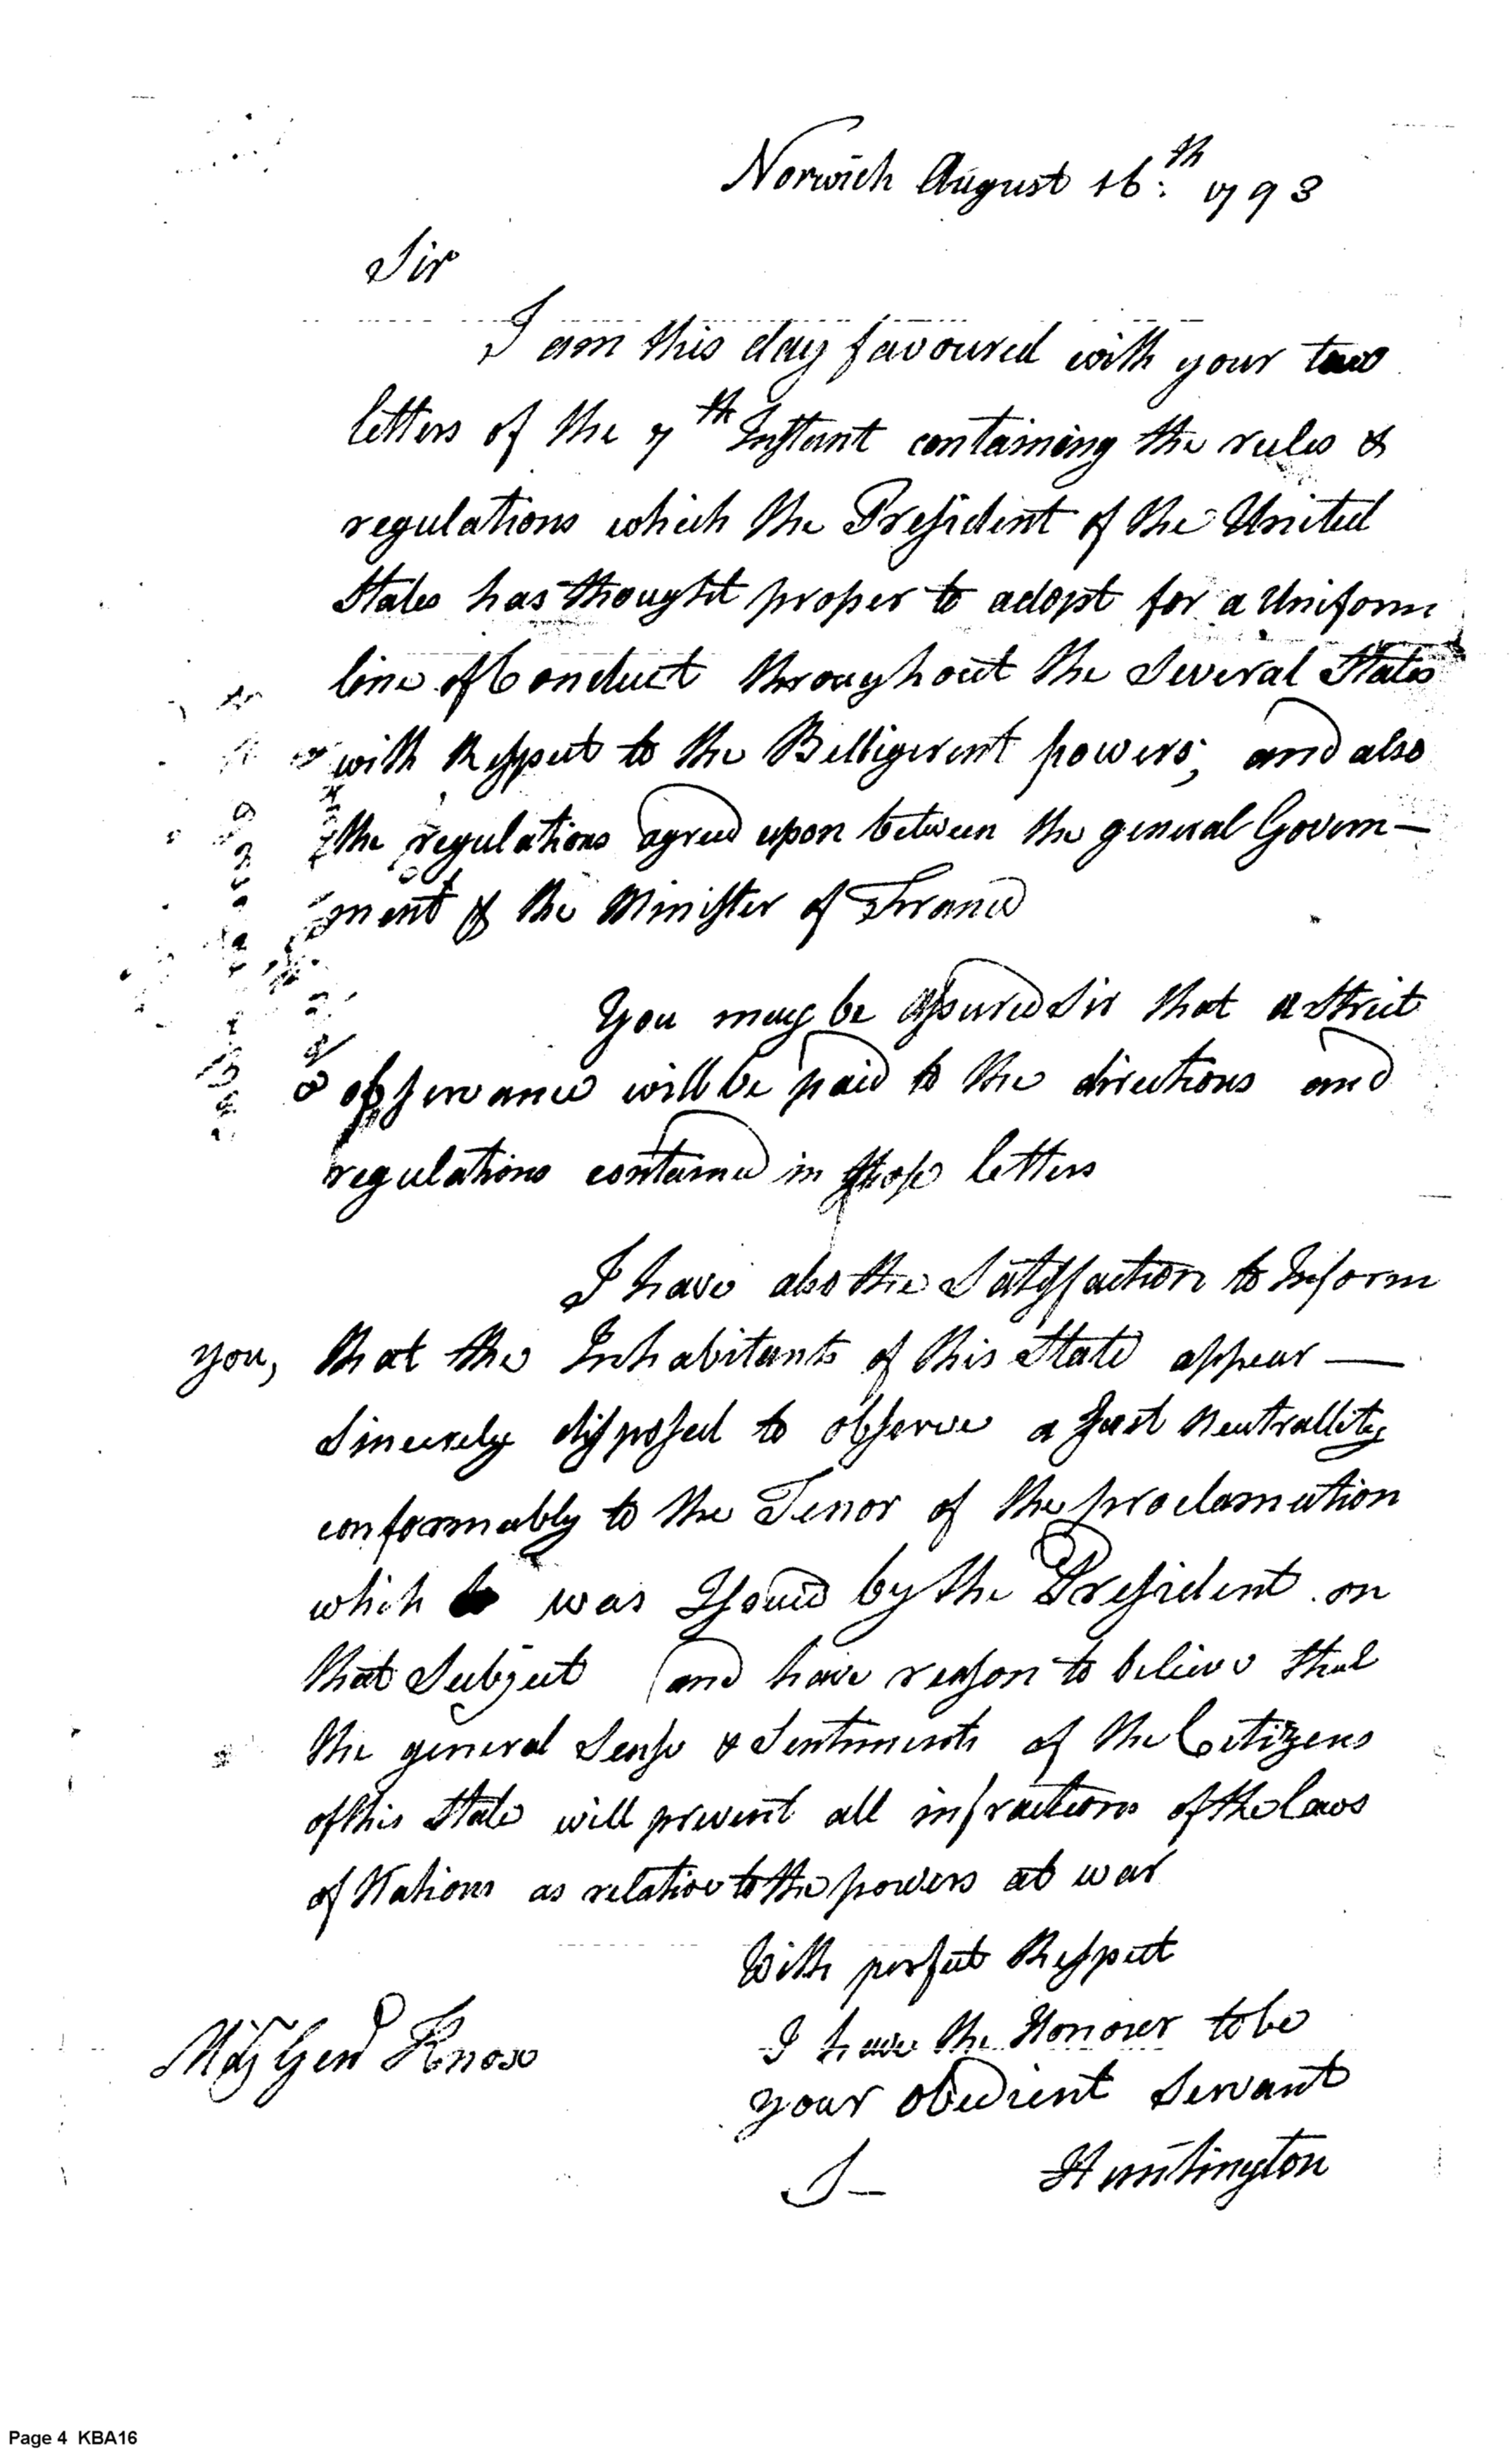 Norwich August 16:th 1793
Sir
I am this day favoured with your two
letters of the 7th Instant containing the rules &
regulations which the President of the United
States has thought proper to adopt for a Uniform
line of Conduct throughout the Several States
with Respect to the Belligerent powers, and also
the regulations agreed upon between the general Govern—
ment & the Minister of France
You may be assured Sir that a Strict
observance will be paid to the directions and
regulations contained in those letters
I have also the Satisfaction to Inform
you, that the Inhabitants of this State appear —
Sincerely disposed to observe a Just Neutrallity
conformably to the Tenor of the proclamation
which was Issued by the President on
that Subject and have reason to believe that
the general Sense & Sentiments of the Citizens
of this State will prevent all infractions of the laws
of Nations as relative to the powers at war
With perfect Respect
I have the Honour to be
your obedient Servant
S— Huntington
Maj Genl Knox
Page 4 KBA16